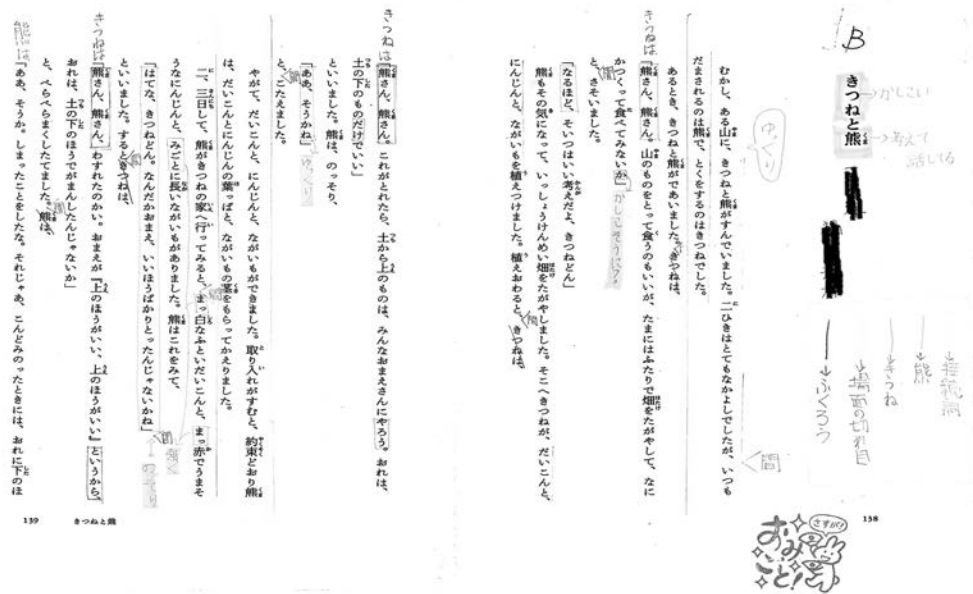 B
きつねと熊
→かしこい
→考えて
話してる
→接続詞
→熊
→きつね
→場面の切れ目
→ふくろう
ゆっくり
むかし、ある山に、きつねと熊がすんでいました。二ひきはとてもなかよしでしたが、いつも
だまされるのは熊で、とくをするのはきつねでした。
間
あるとき、きつねと熊がであいました。きつねは、
きつねは
「熊さん、熊さん。山のものをとって食うのもいいが、たまにはふたりで畑をたがやして、なに
かつくって食べてみないか」
かしこそうに?
と、さそいました。
「なるほど、そいつはいい考えだよ、きつねどん」
熊もその気になって、いっしょうけんめい畑をたがやしました。そこへきつねが、だいこんと、
にんじんと、ながいもを植えつけました。植えおわると、きつねは、
間
138
さすが!
おみごと!
きつねは
「熊さん、熊さん。これがとれたら、土から上のものは、みんなおまえさんにやろう。おれは、
土の下のものだけでいい」
といいました。熊は、のっそり、
「ああ、そうかね」
ゆっくり
と、こたえました。
間
やがて、だいこんと、にんじんと、ながいもができました。取り入れがすむと、約束どおり熊
は、だいこんとにんじんの葉っぱと、ながいもの茎をもらってかえりました。
二、三日して、熊がきつねの家へ行ってみると、まっ白なふといだいこんと、まっ赤でうまそ
うなにんじんと、みごとに長いながいもがありました。熊はこれをみて、
間
「はてな、きつねどん。なんだかおまえ、いいほうばかりとったんじゃないかね」
のっそり
といいました。するときつねは、
きつねは
「熊さん、熊さん、わすれたのかい。おまえが『上のほうがいい、上のほうがいい』というから、
おれは、土の下のほうでがまんしたんじゃないか」
と、ぺらぺらまくしたてました。熊は、
間
熊は
「ああ、そうか。しまったことをしたな。それじゃあ、こんどみのったときには、おれに下のほ
139
きつねと熊